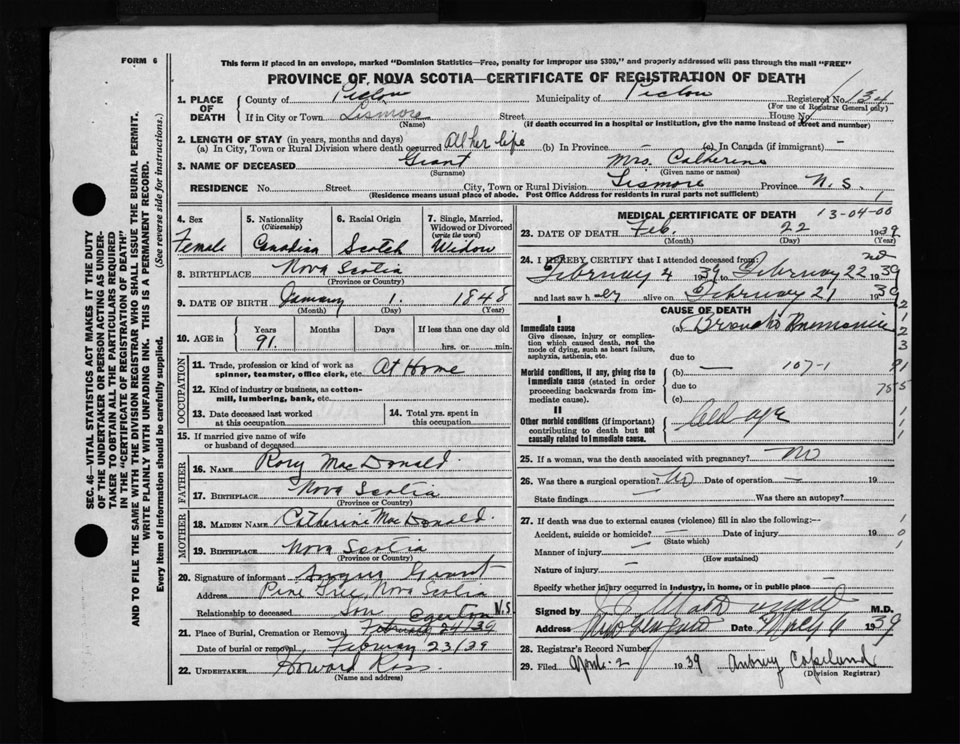 FORM 6
This form if placed in an envelope, marked "Dominion Statistics—Free, penalty for improper use $300," and properly addressed will pass through the mail "FREE"
PROVINCE OF NOVA SCOTIA—CERTIFICATE OF REGISTRATION OF DEATH
1. PLACE OF DEATH
County of Pictou Municipality of Pictou Registered No. 134
(For use of Registrar General only)
If in City or Town Lismore Street House No.
(Name) (If death occurred in a hospital or institution, give the name instead of street and number)
2. LENGTH OF STAY (in years, months and days)
(a) In City, Town or Rural Division where death occurred All her life (b) In Province (c) In Canada (if immigrant) -
3. NAME OF DECEASED Grant Mrs. Catherine
(Surname) (Given name or names)
RESIDENCE No. Street City, Town or Rural Division Lismore Province N. S.
(Residence means usual place of abode. Post Office Address for residents in rural parts not sufficient)
SEC. 46—VITAL STATISTICS ACT MAKES IT THE DUTY
OF THE UNDERTAKER OR PERSON ACTING AS UNDER-
TAKER TO OBTAIN ALL THE PARTICULARS REQUIRED
IN THE "CERTIFICATE OF REGISTRATION OF DEATH"
AND TO FILE THE SAME WITH THE DIVISION REGISTRAR WHO SHALL ISSUE THE BURIAL PERMIT.
WRITE PLAINLY WITH UNFADING INK. THIS IS A PERMANENT RECORD.
Every item of information should be carefully supplied. (See reverse side for instructions.)
4. Sex
Female
5. Nationality
(Citizenship)
Canadian
6. Racial Origin
Scotch
7. Single, Married, Widowed or Divorced
(write the word)
Widow
8. BIRTHPLACE Nova Scotia
(Province or Country)
9. DATE OF BIRTH January 1. 1848
(Month) (Day) (Year)
10. AGE in Years Months Days If less than one day old
91. hrs. or min.
OCCUPATION
11. Trade, profession or kind of work as At Home
spinner, teamster, office clerk, etc.
12. Kind of industry or business, as cotton-
mill, lumbering, bank, etc.
13. Date deceased last worked at this occupation
14. Total yrs. spent in this occupation
15. If married give name of wife
or husband of deceased
FATHER
16. NAME Rory MacDonald.
17. BIRTHPLACE Nova Scotia
(Province or Country)
MOTHER
18. MAIDEN NAME Catherine MacDonald.
19. BIRTHPLACE Nova Scotia
(Province or Country)
20. Signature of informant Angus Grant
Address Pine Tree, Nova Scotia
Relationship to deceased Son
Egerton N.S.
21. Place of Burial, Cremation or Removal February 24/39
Date of burial or removal February 23/39
22. UNDERTAKER Howard Ross.
(Name and address)
MEDICAL CERTIFICATE OF DEATH 13-04-00
23. DATE OF DEATH Feb. 22 1939
(Month) (Day) (Year)
24. I HEREBY CERTIFY that I attended deceased from:
February 4 1939 to February 22nd 1939
and last saw her alive on February 21 1939
CAUSE OF DEATH
I
Immediate cause (a) Broncho Pneumonia
Give disease, injury or complica-
tion which caused death, not the
mode of dying, such as heart failure,
asphyxia, asthenia, etc.
due to
Morbid conditions, if any, giving rise to (b) — 107-1
immediate cause (stated in order due to
proceeding backwards from im-
mediate cause). (c)
II
Other morbid conditions (if important) old age
contributing to death but not
causally related to immediate cause.
25. If a woman, was the death associated with pregnancy? No
26. Was there a surgical operation? No Date of operation — 19
State findings Was there an autopsy?
27. If death was due to external causes (violence) fill in also the following:—
Accident, suicide or homicide? — Date of injury 19
(State which)
Manner of injury —
(How sustained)
Nature of injury —
Specify whether injury occurred in industry, in home, or in public place —
Signed by M.D.
Address New Glasgow Date March 6 1939
28. Registrar's Record Number
29. Filed 2 1939 Aubrey Copeland
(Division Registrar)